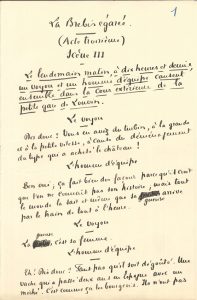 1
La Brebis égarée.
(Acte troisième)
Scène III
Le lendemain matin, à dix heures et demie
un voyou et un homme d'équipe causent
ensemble dans la cour extérieure de la
petite gare de
Le voyou
Dis donc! Vous en avez du turbin, à la grande
et à la petite vitesse, à cause du déménagement
du type qui a acheté le château!
L'homme d'équipe
Bon oui; ça fait bien du foin parce qu'il croit
que l'on ne connaît pas son histoire; mais tout
le monde la sait et même que sa gueuse arrive
par le train de tout à l'heure.
gueuse
Le voyou
La gueuse, c'est sa femme.
L'homme d'équipe
Eh! Dis donc! faut pas qu'il soit dégoûté. Une
vache qui a partir deux ans en Espagne avec un
miché! C'est comme ça les bourgeois. Ils n'ont pas